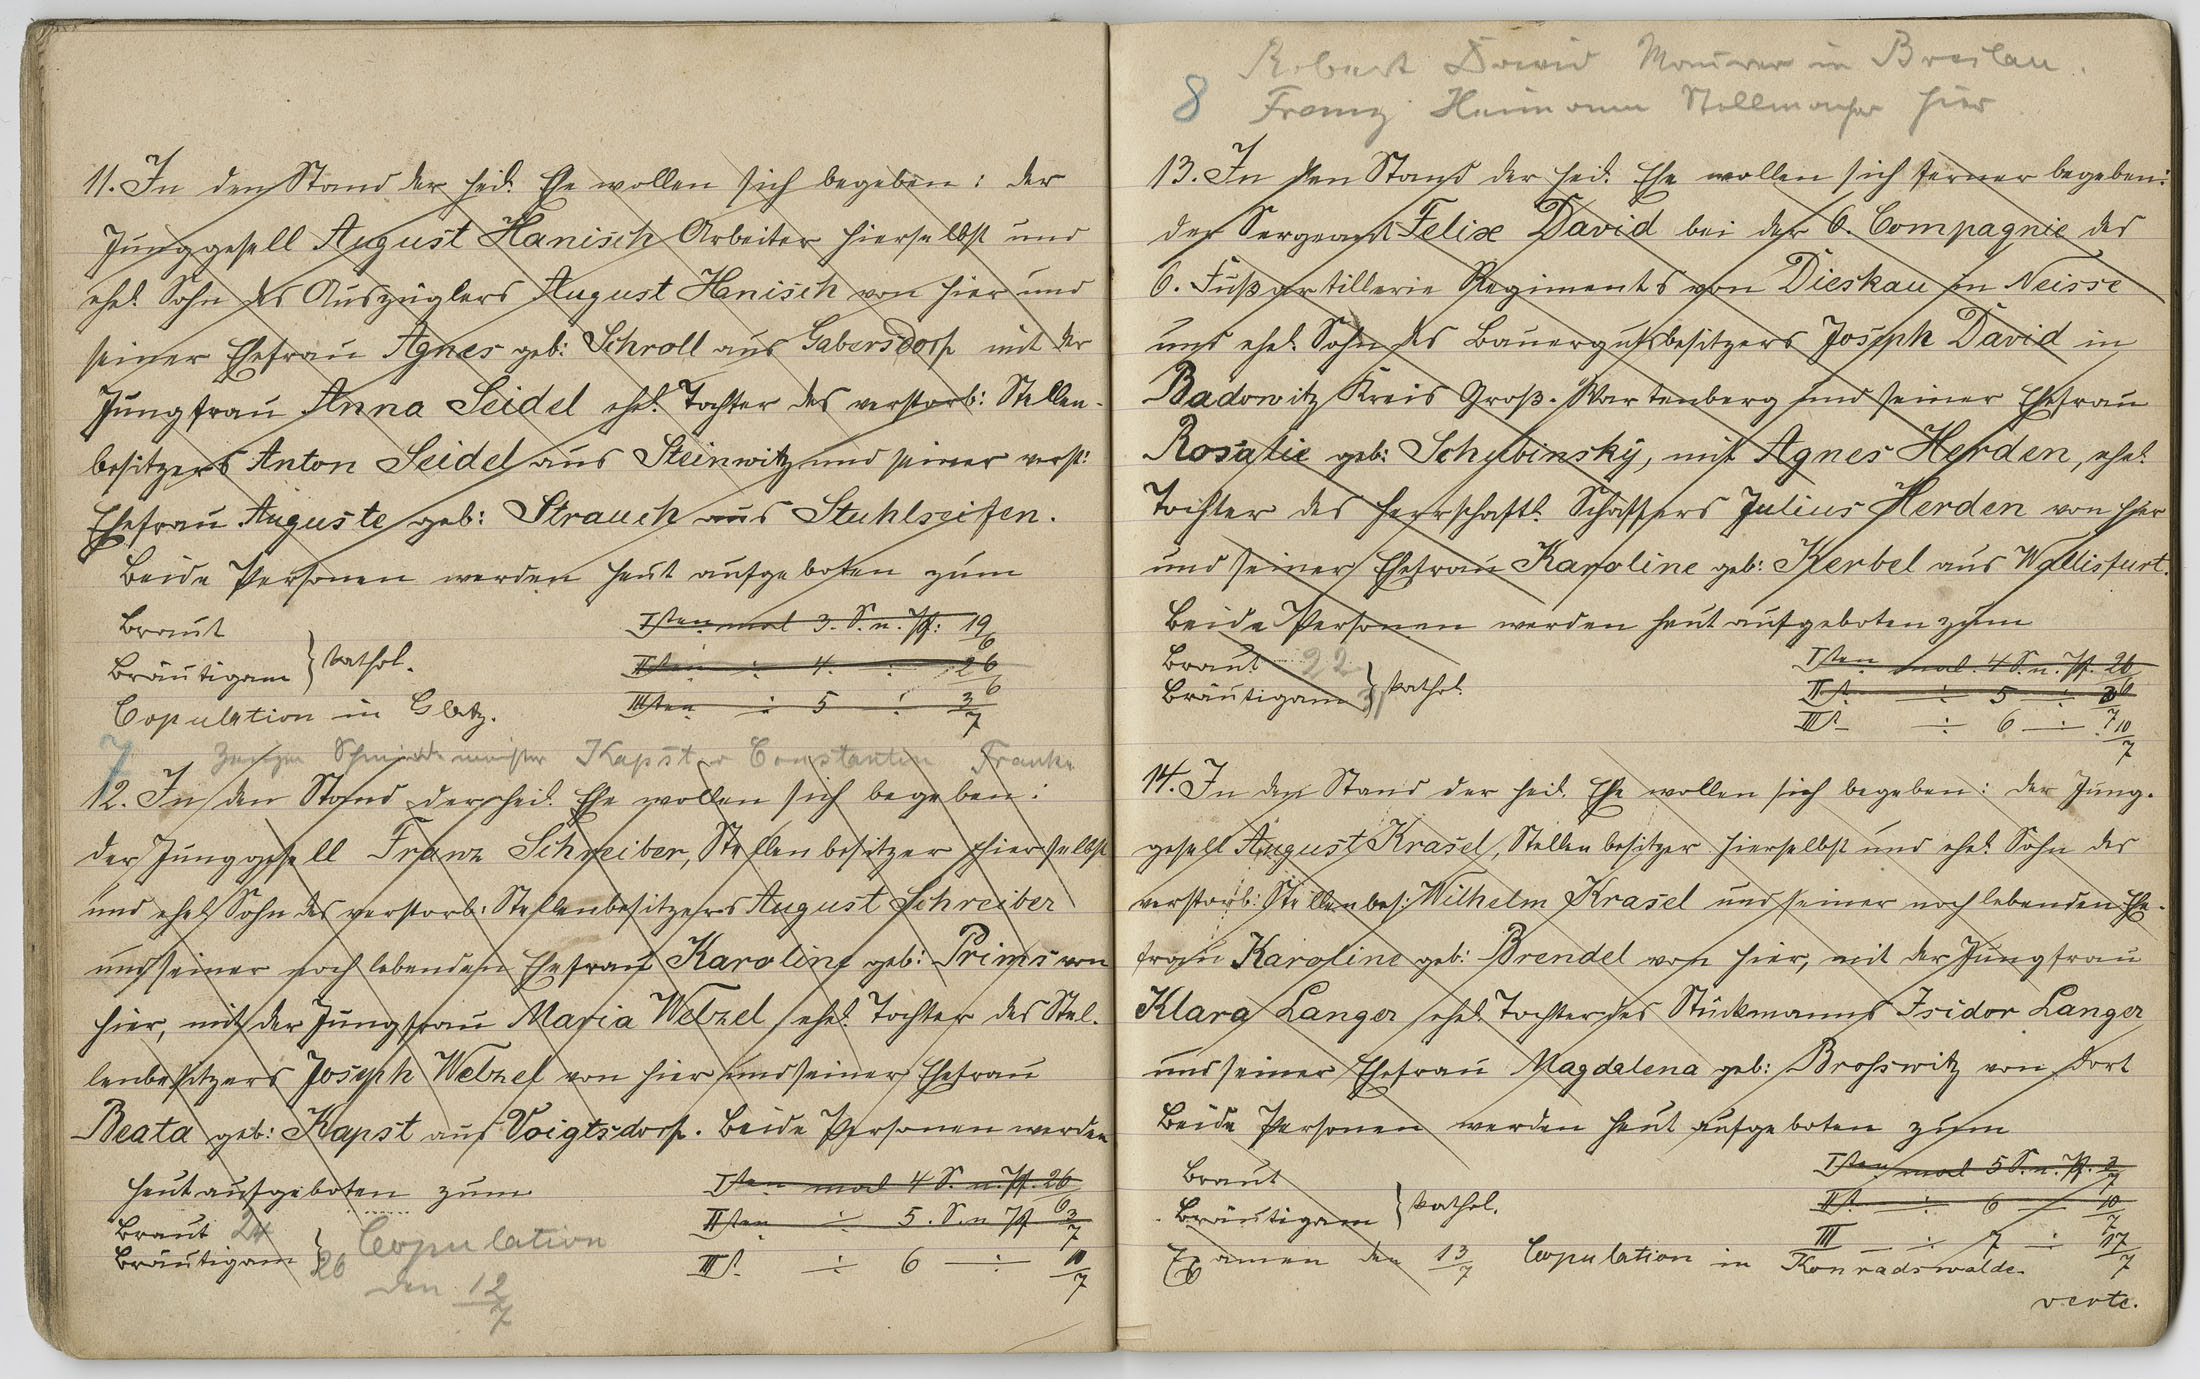 11. In den Stand der heil. Ehe wollen sich begeben: der
Junggesell August Hanisch Arbeiter hierselbst und
ehel. Sohn des Auszüglers August Hanisch von hier und
seiner Ehefrau Agnes geb: Schroll aus Gabersdorf mit der
Jungfrau Anna Seidel ehel. Tochter des verstorb: Stellen-
besitzers Anton Seidel aus Steinwitz und seiner verst:
Ehefrau Auguste geb: Strauch aus Stuhlseifen.
Beide Personen werden heut aufgeboten zum
Braut
Bräutigam } kathol.
Copulation in Glatz.
Isten mal 3. S. n. Pf: 19/6
IIten ÷ 4 ÷ 26/6
IIIten ÷ 5 ÷ 3/7
7 Zeugen Schmiedemeister Kapst Constantin Franke
12. In den Stand der heil. Ehe wollen sich begeben:
der Junggesell Franz Schreiber, Stellenbesitzer hierselbst
und ehel. Sohn des verstorb: Stellenbesitzers August Schreiber
und seiner noch lebenden Ehefrau Karoline geb: Prims von
hier, mit der Jungfrau Maria Welzel ehel. Tochter des Stel-
lenbesitzers Joseph Welzel von hier und seiner Ehefrau
Beata geb: Kapst aus Voigtsdorf. Beide Personen werden
heut aufgeboten zum
Braut 24
Bräutigam } 26
Copulation
den 12/7
Isten mal 4 S. n. Pf. 26/6
IIten ÷ 5. S. n Pf 3/7
IIIt. ÷ 6 ÷ 10/7
Robert David Maurer in Breslau.
8 Franz Heimann Stellmacher hier
13. In den Stand der heil. Ehe wollen sich ferner begeben:
der Sergeant Felix David bei der 6. Compagnie des
6. Fußartillerie Regiments von Dieskau in Neisse
und ehel. Sohn des Bauergutsbesitzers Joseph David in
Badowitz Kreis Groß-Wartenberg und seiner Ehefrau
Rosalie geb: Schubinsky, mit Agnes Herden, ehel.
Tochter des herrschaftl. Schaffers Julius Herden von hier
und seiner Ehefrau Karoline geb: Kerbel aus Wallisfurt.
Beide Personen werden heut aufgeboten zum
Braut 22
Bräutigam } kathol.
Isten mal 4 S. n. Pf. 26/6
IIt. ÷ 5 ÷ 3/7
IIIt ÷ 6 ÷ 10/7
14. In den Stand der heil. Ehe wollen sich begeben: der Jung-
gesell August Krasel, Stellenbesitzer hierselbst und ehel. Sohn des
verstorb: Stellenbes: Wilhelm Krasel und seiner noch lebenden Ehe-
frau Karoline geb: Brendel von hier, mit der Jungfrau
Klara Langer ehel. Tochter des Stückmanns Isidor Langer
und seiner Ehefrau Magdalena geb: Broßwitz von dort
Beide Personen werden heut aufgeboten zum
Braut
Bräutigam } kathol.
Isten mal 5 S. n. Pf. 3/7
IIt. ÷ 6 — 10/7
III — ÷ 7 ÷ 17/7
Examen den 13/7 Copulation in Konradswalde.
verte.